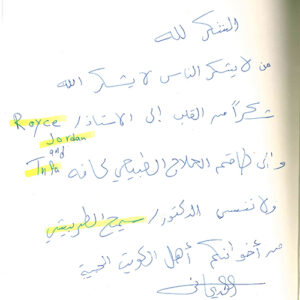 الشكر لله
من لا يشكر الناس لا يشكر الله
شكراً من القلب إلى الاستاذ / Royce
Jordan
and
والى طاقم العلاج الطبيعي كافه
ولا ننسى الدكتور / سميح
من أخوانكم أهل الكويت